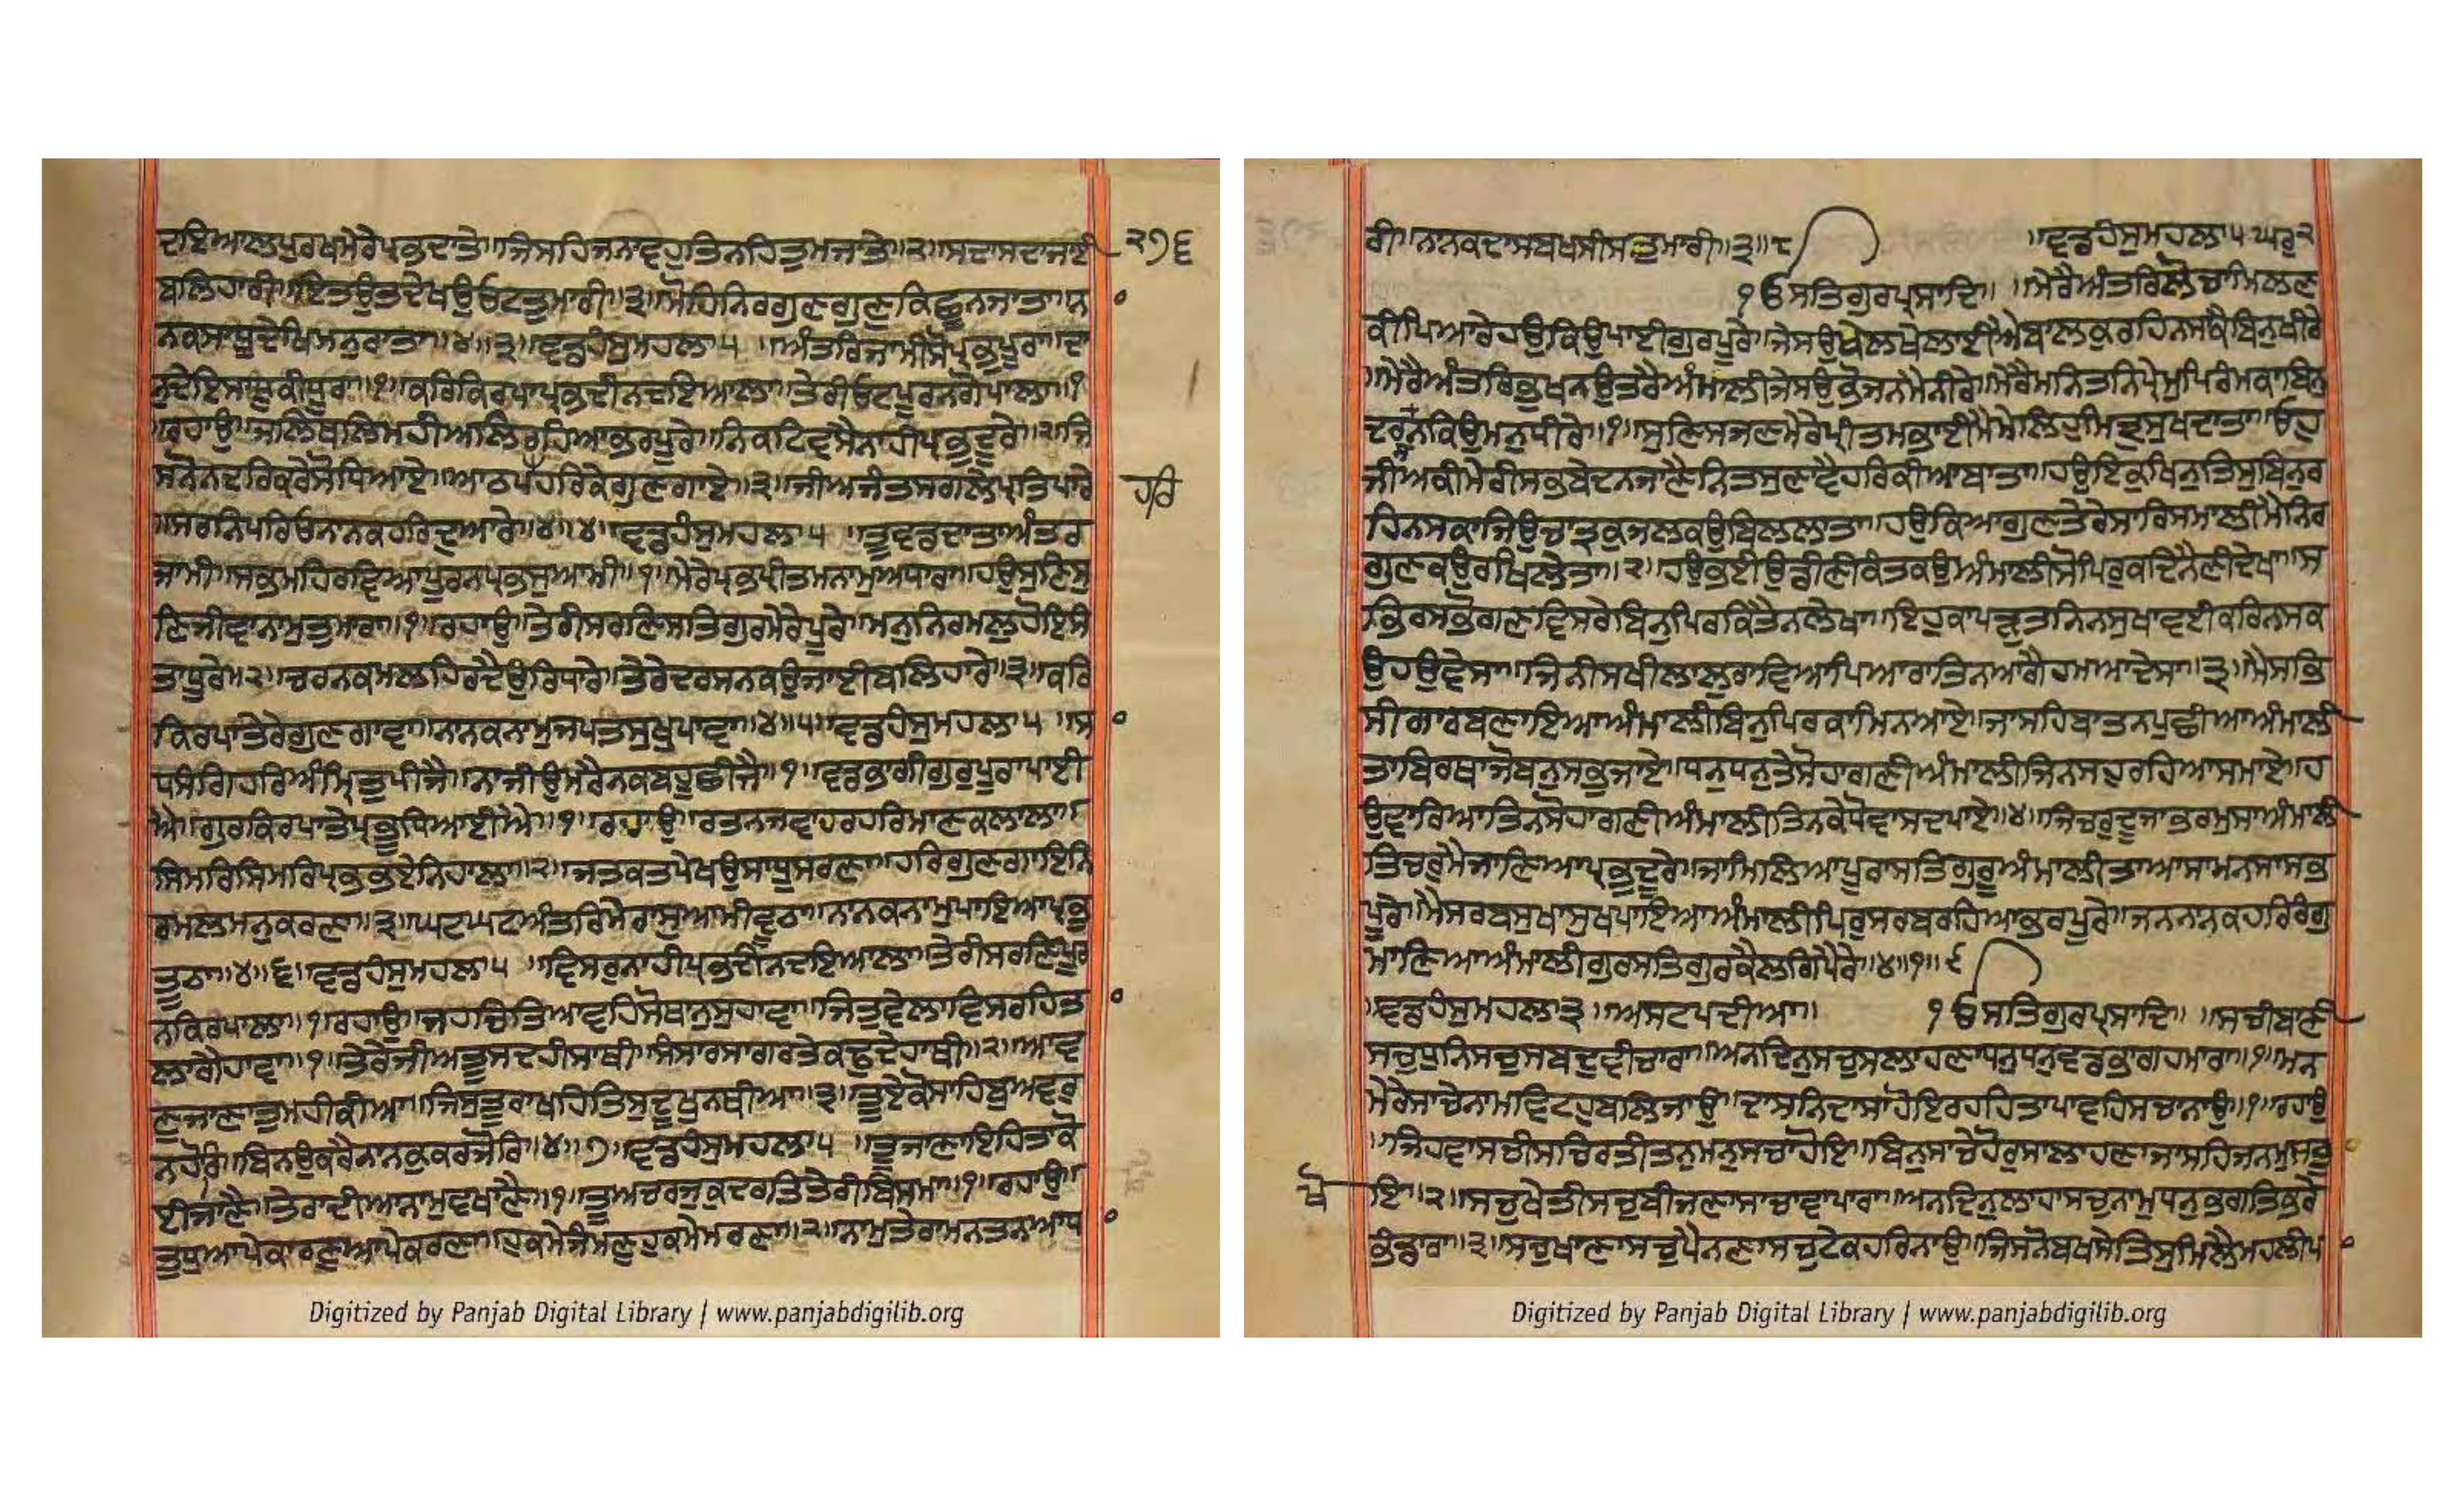 ਦਇਆਲਪੁਰਖਮੇਰੇਪ੍ਰਭਦਾਤੇ॥ਜਿਸਹਿਜਨਾਵਹੁਤਿਨਹਿਤੁਮਜਾਤੇ॥੨॥ਸਦਾਸਦਾਜਾਈ
੨੭੬
ਬਲਿਹਾਰੀ॥ਇਤਉਤਦੇਖਉਓਟਤੁਮਾਰੀ॥੩॥ਮੋਹਿਨਿਰਗੁਣਗੁਣੁਕਿਛੂਨਜਾਤਾ॥ਨਾ
ਨਕਸਾਧੂਦੇਖਿਮਨੁਰਾਤਾ॥੪॥੩॥ਵਡਹੰਸੁਮਹਲਾ੫ ॥ਅੰਤਰਿਜਾਮੀਸੋਪ੍ਰਭੁਪੂਰਾ॥ਦਾ
ਨੁਦੇਇਸਾਧੂਕੀਧੂਰਾ॥੧॥ਕਰਿਕਿਰਪਾਪ੍ਰਭਦੀਨਦਇਆਲਾ॥ਤੇਰੀਓਟਪੂਰਨਗੋਪਾਲਾ॥੧
॥ਰਹਾਉ॥ਜਲਿਥਲਿਮਹੀਆਲਿਰਹਿਆਭਰਪੂਰੇ॥ਨਿਕਟਿਵਸੈਨਾਹੀਪ੍ਰਭੁਦੂਰੇ॥੨॥ਜਿ
ਸਨੋਨਦਰਿਕਰੇਸੋਧਿਆਏ॥ਆਠਪਹਰਿਕੇਗੁਣਗਾਏ॥੩॥ਜੀਅਜੰਤਸਗਲੇਪ੍ਰਤਿਪਾਰੇ
ਹਰਿ
॥ਸਰਨਿਪਰਿਓਨਾਨਕਹਰਿਦੁਆਰੇ॥੪॥੪॥ਵਡਹੰਸੁਮਹਲਾ੫ ॥ਤੂਵਡਦਾਤਾਅੰਤਰ
ਜਾਮੀ॥ਸਭਮਹਿਰਵਿਆਪੂਰਨਪ੍ਰਭਸੁਆਮੀ॥੧॥ਮੇਰੇਪ੍ਰਭਪ੍ਰੀਤਮਨਾਮੁਅਧਾਰਾ॥ਹਉਸੁਣਿਸੁ
ਣਿਜੀਵਾਨਾਮੁਤੁਮਾਰਾ॥੧॥ਰਹਾਉ॥ਤੇਰੀਸਰਣਿਸਤਿਗੁਰਮੇਰੇਪੂਰੇ॥ਮਨੁਨਿਰਮਲੁਹੋਇਸੰ
ਤਾਧੂਰੇ॥੨॥ਚਰਨਕਮਲਹਿਰਦੈਉਰਿਧਾਰੇ॥ਤੇਰੇਦਰਸਨਕਉਜਾਈਬਲਿਹਾਰੇ॥੩॥ਕਰਿ
ਕਿਰਪਾਤੇਰੇਗੁਣਗਾਵਾ॥ਨਾਨਕਨਾਮੁਜਪਤਸੁਖੁਪਾਵਾ॥੪॥੫॥ਵਡਹੰਸੁਮਹਲਾ੫ ॥ਸਾ
ਧਸੰਗਿਹਰਿਅੰਮ੍ਰਿਤੁਪੀਜੈ॥ਨਾਜੀਉਮਰੈਨਕਬਹੂਛੀਜੈ॥੧॥ਵਡਭਾਗੀਗੁਰੁਪੂਰਾਪਾਈ
ਐ॥ਗੁਰਕਿਰਪਾਤੇਪ੍ਰਭੂਧਿਆਈਐ॥੧॥ਰਹਾਉ॥ਰਤਨਜਵਾਹਰਹਰਿਮਾਣਕਲਾਲਾ॥
ਸਿਮਰਿਸਿਮਰਿਪ੍ਰਭਭਏਨਿਹਾਲਾ॥੨॥ਜਤਕਤਪੇਖਉਸਾਧੂਸਰਣਾ॥ਹਰਿਗੁਣਗਾਇਨਿ
ਰਮਲਮਨੁਕਰਣਾ॥੩॥ਘਟਘਟਅੰਤਰਿਮੇਰਾਸੁਆਮੀਵੂਠਾ॥ਨਾਨਕਨਾਮੁਪਾਇਆਪ੍ਰਭੁ
ਤੂਠਾ॥੪॥੬॥ਵਡਹੰਸੁਮਹਲਾ੫ ॥ਵਿਸਰੁਨਾਹੀਪ੍ਰਭਦੀਨਦਇਆਲਾ॥ਤੇਰੀਸਰਣਿਪੂਰ
ਨਕਿਰਪਾਲਾ॥੧॥ਰਹਾਉ॥ਜਹਚਿਤਿਆਵਹਿਸੋਥਾਨੁਸੁਹਾਵਾ॥ਜਿਤੁਵੇਲਾਵਿਸਰਹਿਤਾ
ਲਾਗੈਹਾਵਾ॥੧॥ਤੇਰੇਜੀਅਤੂਸਦਹੀਸਾਥੀ॥ਸੰਸਾਰਸਾਗਰਤੇਕਢੁਦੇਹਾਥੀ॥੨॥ਆਵ
ਣੁਜਾਣਾਤੁਮਹੀਕੀਆ॥ਜਿਸੁਤੂਰਾਖਹਿਤਿਸੁਦੂਖੁਨਥੀਆ॥੩॥ਤੂਏਕੋਸਾਹਿਬੁਅਵਰੁ
ਨਹੋਰਿ॥ਬਿਨਉਕਰੈਨਾਨਕੁਕਰਜੋਰਿ॥੪॥੭॥ਵਡਹੰਸੁਮਹਲਾ੫ ॥ਤੂਜਾਣਾਇਹਿਤਾਕੋ
ਈਜਾਣੈ॥ਤੇਰਾਦੀਆਨਾਮੁਵਖਾਣੈ॥੧॥ਤੂਅਚਰਜੁਕੁਦਰਤਿਤੇਰੀਬਿਸਮਾ॥੧॥ਰਹਾਉ॥
ਤੁਧੁਆਪੇਕਾਰਣੁਆਪੇਕਰਣਾ॥ਹੁਕਮੇਜੰਮਣੁਹੁਕਮੇਮਰਣਾ॥੨॥ਨਾਮੁਤੇਰਾਮਨਤਨਆਧਾ
Digitized by Panjab Digital Library | www.panjabdigilib.org
ਰੀ॥ਨਾਨਕਦਾਸਬਖਸੀਸਤੁਮਾਰੀ॥੩॥੮ ॥ਵਡਹੰਸੁਮਹਲਾ੫ਘਰੁ੨
ੴਸਤਿਗੁਰਪ੍ਰਸਾਦਿ॥ ॥ਮੇਰੈਅੰਤਰਿਲੋਚਾਮਿਲਣ
ਕੀਪਿਆਰੇਹਉਕਿਉਪਾਈਗੁਰਪੂਰੇ॥ਜੇਸਉਖੇਲਖੇਲਾਈਐਬਾਲਕੁਰਹਿਨਸਕੈਬਿਨੁਖੀਰੇ
॥ਮੇਰੈਅੰਤਰਿਭੁਖਨਉਤਰੈਅੰਮਾਲੀਜੇਸਉਭੋਜਨਮੈਨੀਰੇ॥ਮੇਰੈਮਨਿਤਨਿਪ੍ਰੇਮੁਪਿਰੰਮਕਾਬਿਨੁ
ਦਰਸਨਕਿਉਮਨੁਧੀਰੇ॥੧॥ਸੁਣਿਸਜਣਮੇਰੇਪ੍ਰੀਤਮਭਾਈਮੈਮੇਲਿਹੁਮਿਤ੍ਰੁਸੁਖਦਾਤਾ॥ਓਹੁ
ਜੀਅਕੀਮੇਰੀਸਭਬੇਦਨਜਾਣੈਨਿਤਸੁਣਾਵੈਹਰਿਕੀਆਬਾਤਾ॥ਹਉਇਕੁਖਿਨੁਤਿਸੁਬਿਨੁਰ
ਹਿਨਸਕਾਜਿਉਚਾਤ੍ਰਿਕੁਜਲਕਉਬਿਲਲਾਤਾ॥ਹਉਕਿਆਗੁਣਤੇਰੇਸਾਰਿਸਮਾਲੀਮੈਨਿਰ
ਗੁਣਕਉਰਖਿਲੇਤਾ॥੨॥ਹਉਭਈਉਡੀਣੀਕੰਤਕਉਅੰਮਾਲੀਸੋਪਿਰੁਕਦਿਨੈਣੀਦੇਖਾ॥ਸ
ਭਿਰਸਭੋਗਣਵਿਸਰੇਬਿਨੁਪਿਰਕਿਤੈਨਲੇਖਾ॥ਇਹੁਕਾਪੜੁਤਨਿਨਸੁਖਾਵਈਕਰਿਨਸਕ
ਉਹਉਵੇਸਾ॥ਜਿਨੀਸਖੀਲਾਲੁਰਾਵਿਆਪਿਆਰਾਤਿਨਆਗੈਹਮਆਦੇਸਾ॥੩॥ਮੈਸਭਿ
ਸੀਗਾਰਬਣਾਇਆਅੰਮਾਲੀਬਿਨੁਪਿਰਕਾਮਿਨਆਏ॥ਜਾਸਹਿਬਾਤਨਪੁਛੀਆਅੰਮਾਲੀ
ਤਾਬਿਰਥਾਜੋਬਨੁਸਭੁਜਾਏ॥ਧਨੁਧਨੁਤੇਸੋਹਾਗਣੀਅੰਮਾਲੀਜਿਨਸਹੁਰਹਿਆਸਮਾਏ॥ਹ
ਉਵਾਰਿਆਤਿਨਸੋਹਾਗਣੀਅੰਮਾਲੀਤਿਨਕੇਧੋਵਾਸਦਪਾਏ॥੪॥ਜਿਚਰੁਦੂਜਾਭਰਮੁਸਾਅੰਮਾਲੀ
ਤਿਚਰੁਮੈਜਾਣਿਆਪ੍ਰਭੁਦੂਰੇ॥ਜਾਮਿਲਿਆਪੂਰਾਸਤਿਗੁਰੂਅੰਮਾਲੀਤਾਆਸਾਮਨਸਾਸਭ
ਪੂਰੇ॥ਮੈਸਰਬਸੁਖਾਸੁਖਪਾਇਆਅੰਮਾਲੀਪਿਰੁਸਰਬਰਹਿਆਭਰਪੂਰੇ॥ਜਨਨਾਨਕਹਰਿਰੰਗੁ
ਮਾਣਿਆਅੰਮਾਲੀਗੁਰਸਤਿਗੁਰਕੈਲਗਿਪੈਰੇ॥੪॥੧॥੯
॥ਵਡਹੰਸੁਮਹਲਾ੩ ॥ਅਸਟਪਦੀਆ॥ ੴਸਤਿਗੁਰਪ੍ਰਸਾਦਿ॥ ॥ਸਚੀਬਾਣੀ
ਸਚੁਧੁਨਿਸਚੁਸਬਦੁਵੀਚਾਰਾ॥ਅਨਦਿਨੁਸਚੁਸਲਾਹਣਾਧਨੁਧਨੁਵਡਭਾਗਹਮਾਰਾ॥੧॥ਮਨ
ਮੇਰੇਸਾਚੇਨਾਮਵਿਟਹੁਬਲਿਜਾਉ॥ਦਾਸਨਿਦਾਸਾਹੋਇਰਹਹਿਤਾਪਾਵਹਿਸਚਨਾਉ॥੧॥ਰਹਾਉ
॥ਜਿਹਵਾਸਚੀਸਚਿਰਤੀਤਨੁਮਨੁਸਚਾਹੋਇ॥ਬਿਨੁਸਾਚੇਹੋਰੁਸਾਲਾਹਣਾਜਾਸਹਿਜਨਮੁਸਭੁ
ਖੋ
ਇ॥੨॥ਸਚੁਖੇਤੀਸਚੁਬੀਜਣਾਸਾਚਾਵਾਪਾਰਾ॥ਅਨਦਿਨੁਲਾਹਾਸਚੁਨਾਮੁਧਨੁਭਗਤਿਭਰੇ
ਭੰਡਾਰਾ॥੩॥ਸਚੁਖਾਣਾਸਚੁਪੈਨਣਾਸਚੁਟੇਕਹਰਿਨਾਉ॥ਜਿਸਨੋਬਖਸੇਤਿਸੁਮਿਲੈਮਹਲੀਪ
Digitized by Panjab Digital Library | www.panjabdigilib.org